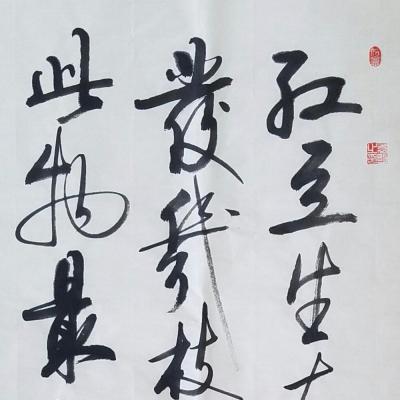 红豆生
發幾枝
此物最